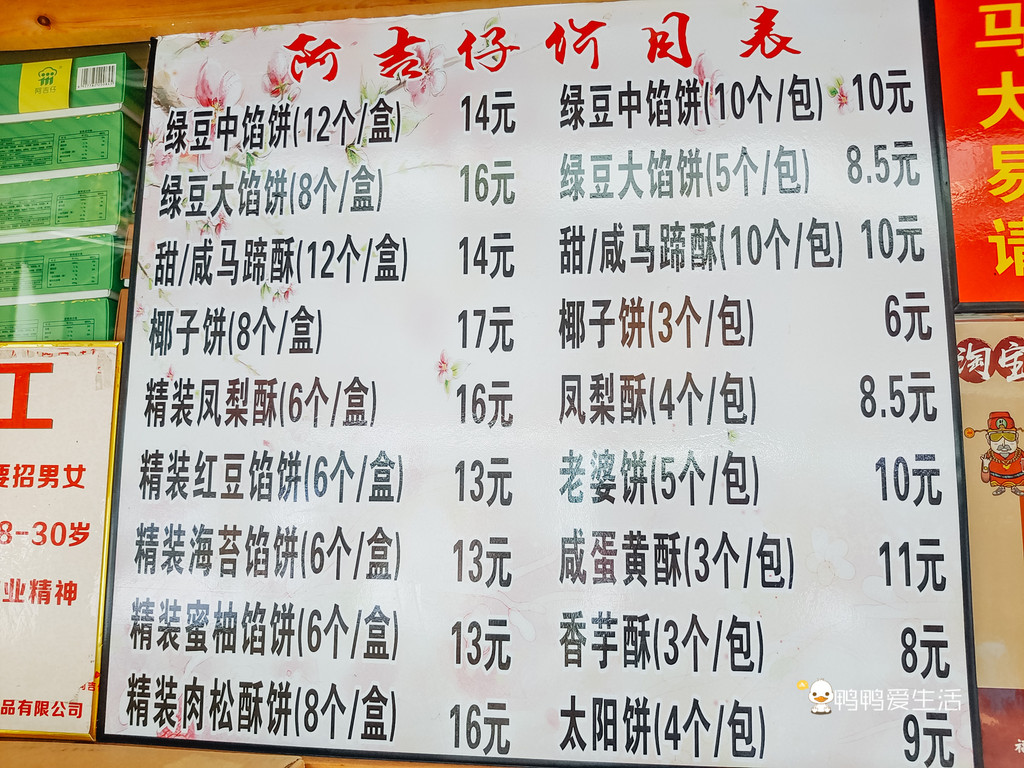 阿吉仔价目表
绿豆中馅饼(12个/盒) 14元
绿豆大馅饼(8个/盒) 16元
甜/咸马蹄酥(12个/盒) 14元
椰子饼(8个/盒) 17元
精装凤梨酥(6个/盒) 16元
精装红豆馅饼(6个/盒) 13元
精装海苔馅饼(6个/盒) 13元
精装蜜柚馅饼(6个/盒) 13元
精装肉松酥饼(8个/盒) 16元
绿豆中馅饼(10个/包) 10元
绿豆大馅饼(5个/包) 8.5元
甜/咸马蹄酥(10个/包) 10元
椰子饼(3个/包) 6元
凤梨酥(4个/包) 8.5元
老婆饼(5个/包) 10元
咸蛋黄酥(3个/包) 11元
香芋酥(3个/包) 8元
太阳饼(4个/包) 9元
工
要招男女
8-30岁
业精神
品有限公司
马
大
易
请
淘宝
鸭鸭爱生活